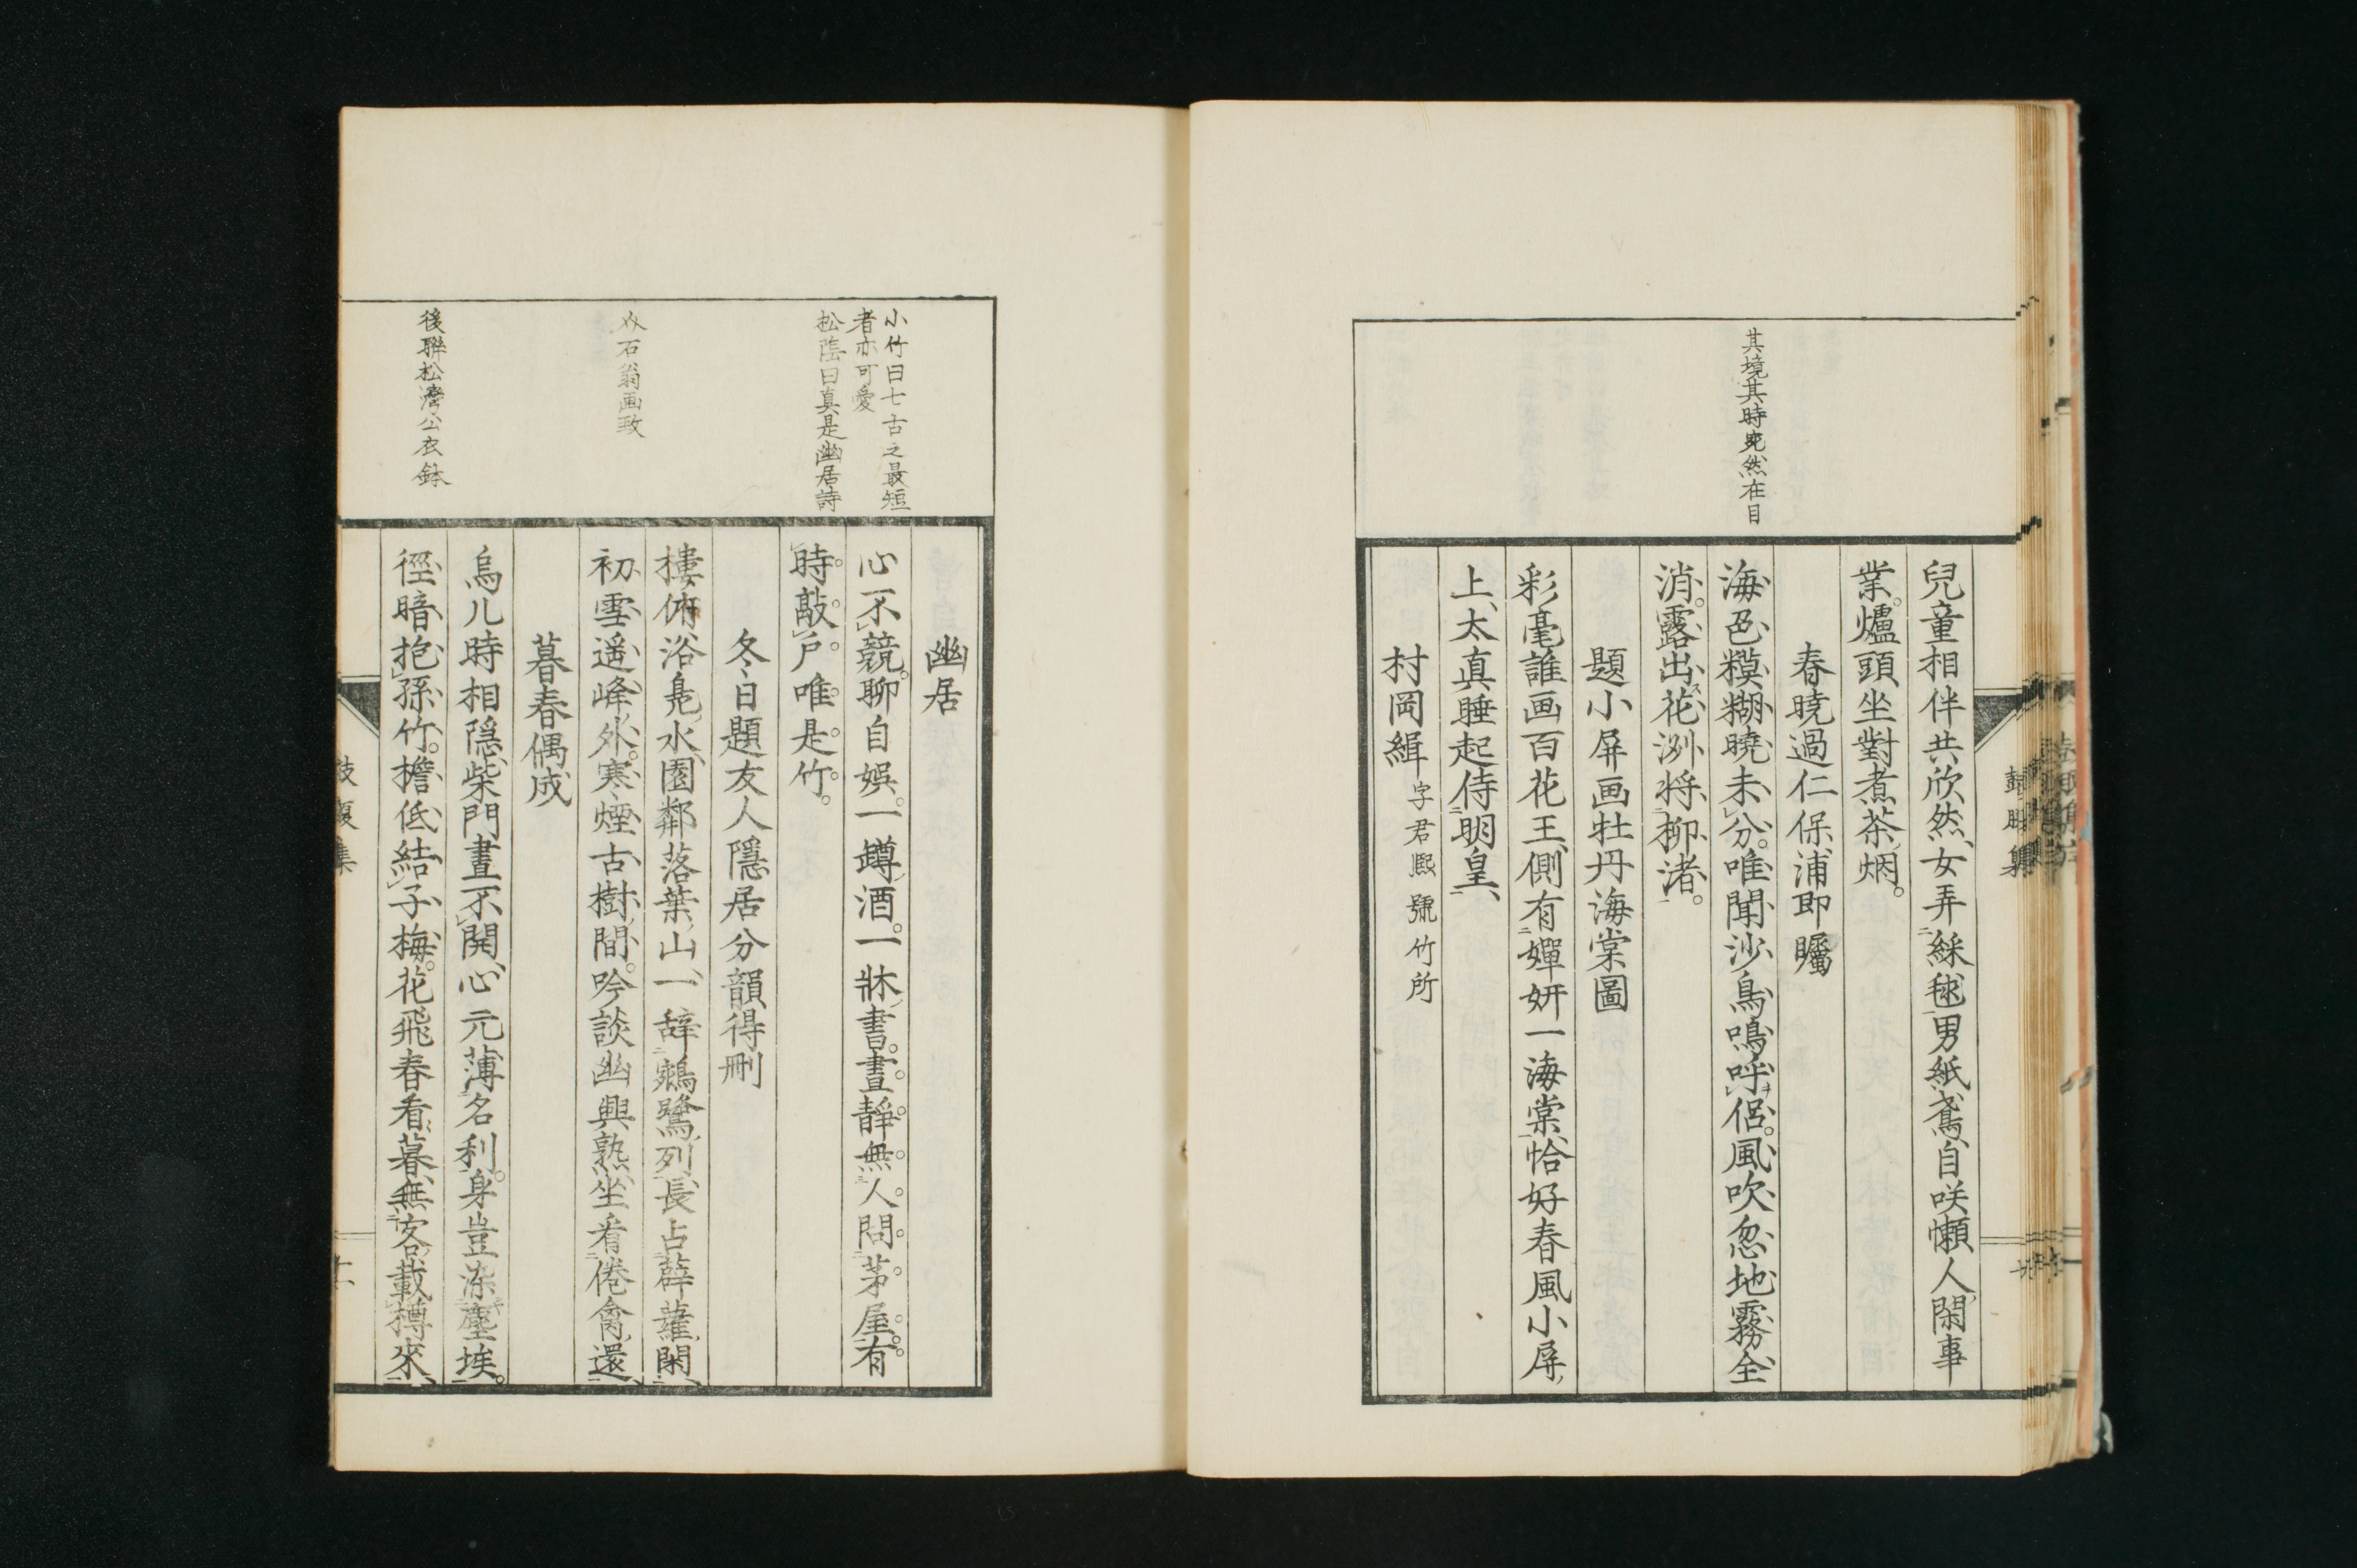 兒童相伴共欣然女弄綵毬男紙鳶自咲懶人閑事
業爐頭坐對煮茶烟
春曉過仁保浦即矚
其境其時宛然在目
海色糢糊曉未分唯聞沙鳥鳴呼侶風吹忽地霧全
消露出花洲將柳渚
題小屏画牡丹海棠圖
彩毫誰画百花王側有嬋妍一海棠恰好春風小屏
上太真睡起侍明皇
村岡緝 字君熙 號竹所
幽居
小竹曰七古之最短
者亦可愛
松蔭曰真是幽居詩
心不競聊自娯一罇酒一牀書晝靜無人問茅屋有
時敲戶唯是竹
冬日題友人隱居分韻得删
樓俯浴鳧水園鄰落葉山一辞鵷鷺列長占薜蘿閑
从石翁画致
初雪遥峰外寒煙古樹間吟談幽興熟坐看倦禽還
暮春偶成
烏几時相隠柴門晝不開心元薄名利身豈涂塵埃
後聯松灣公衣鉢
徑暗抱孫竹檐低結子梅花飛春看暮無客載樽來